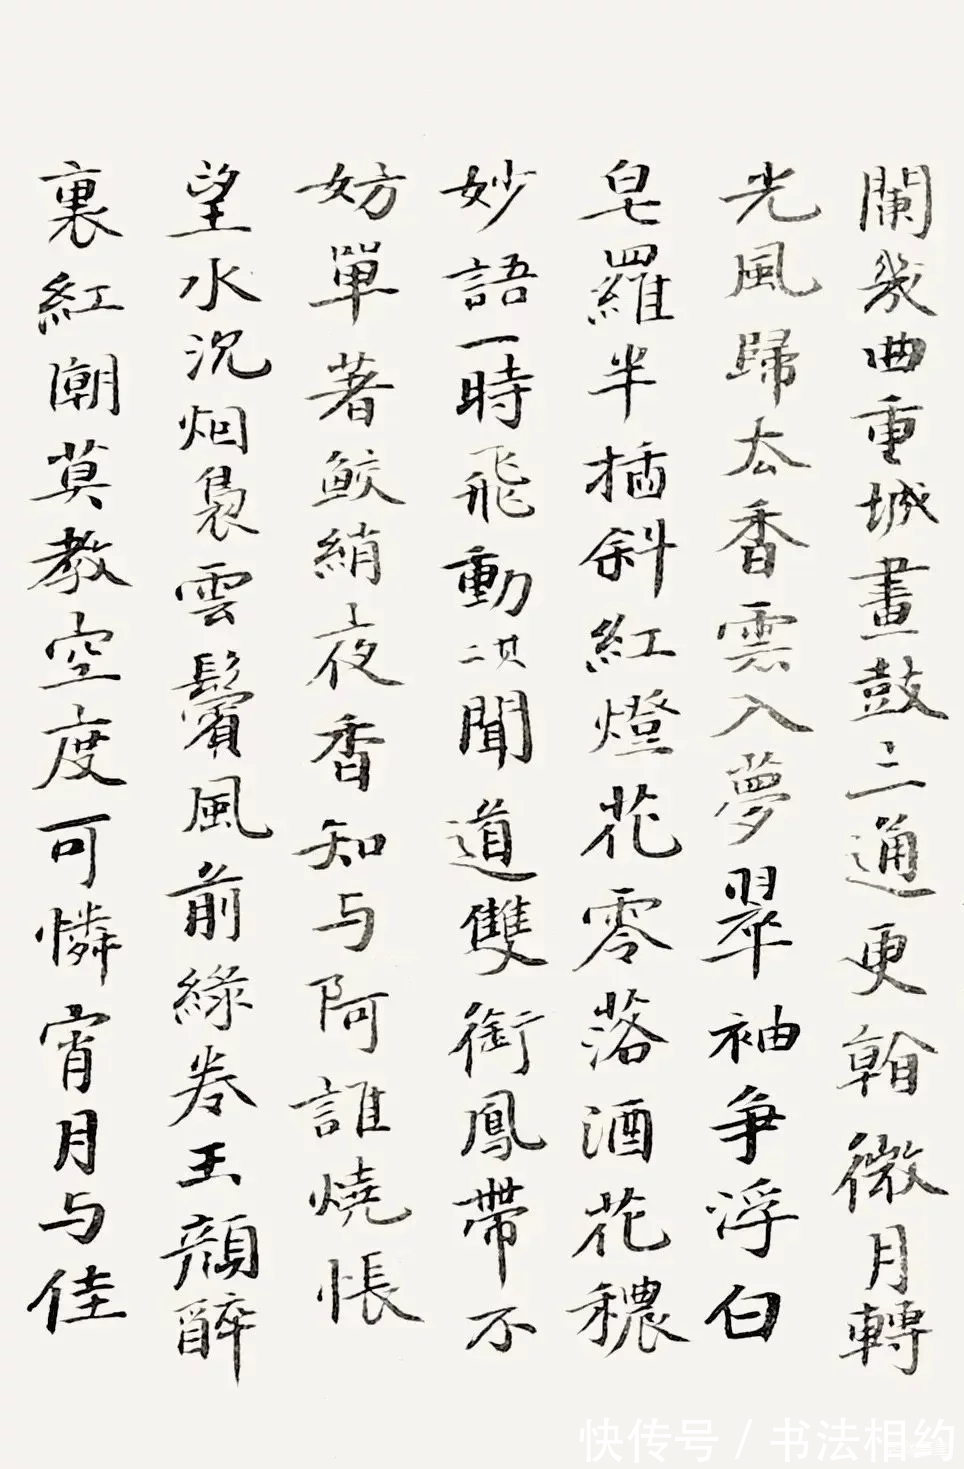 闌幾曲重城畫鼓三通更斡微月轉
光風歸去香雲入夢翠袖爭浮白
皂羅半插斜紅燈花零落酒花穠
妙語一時飛動其二聞道雙銜鳳帶不
妨單著鮫綃夜香知与阿誰燒悵
望水沉烟裊雲鬢風前綠卷玉顏醉
裏紅潮莫教空度可憐宵月与佳
快传号 / 书法相约